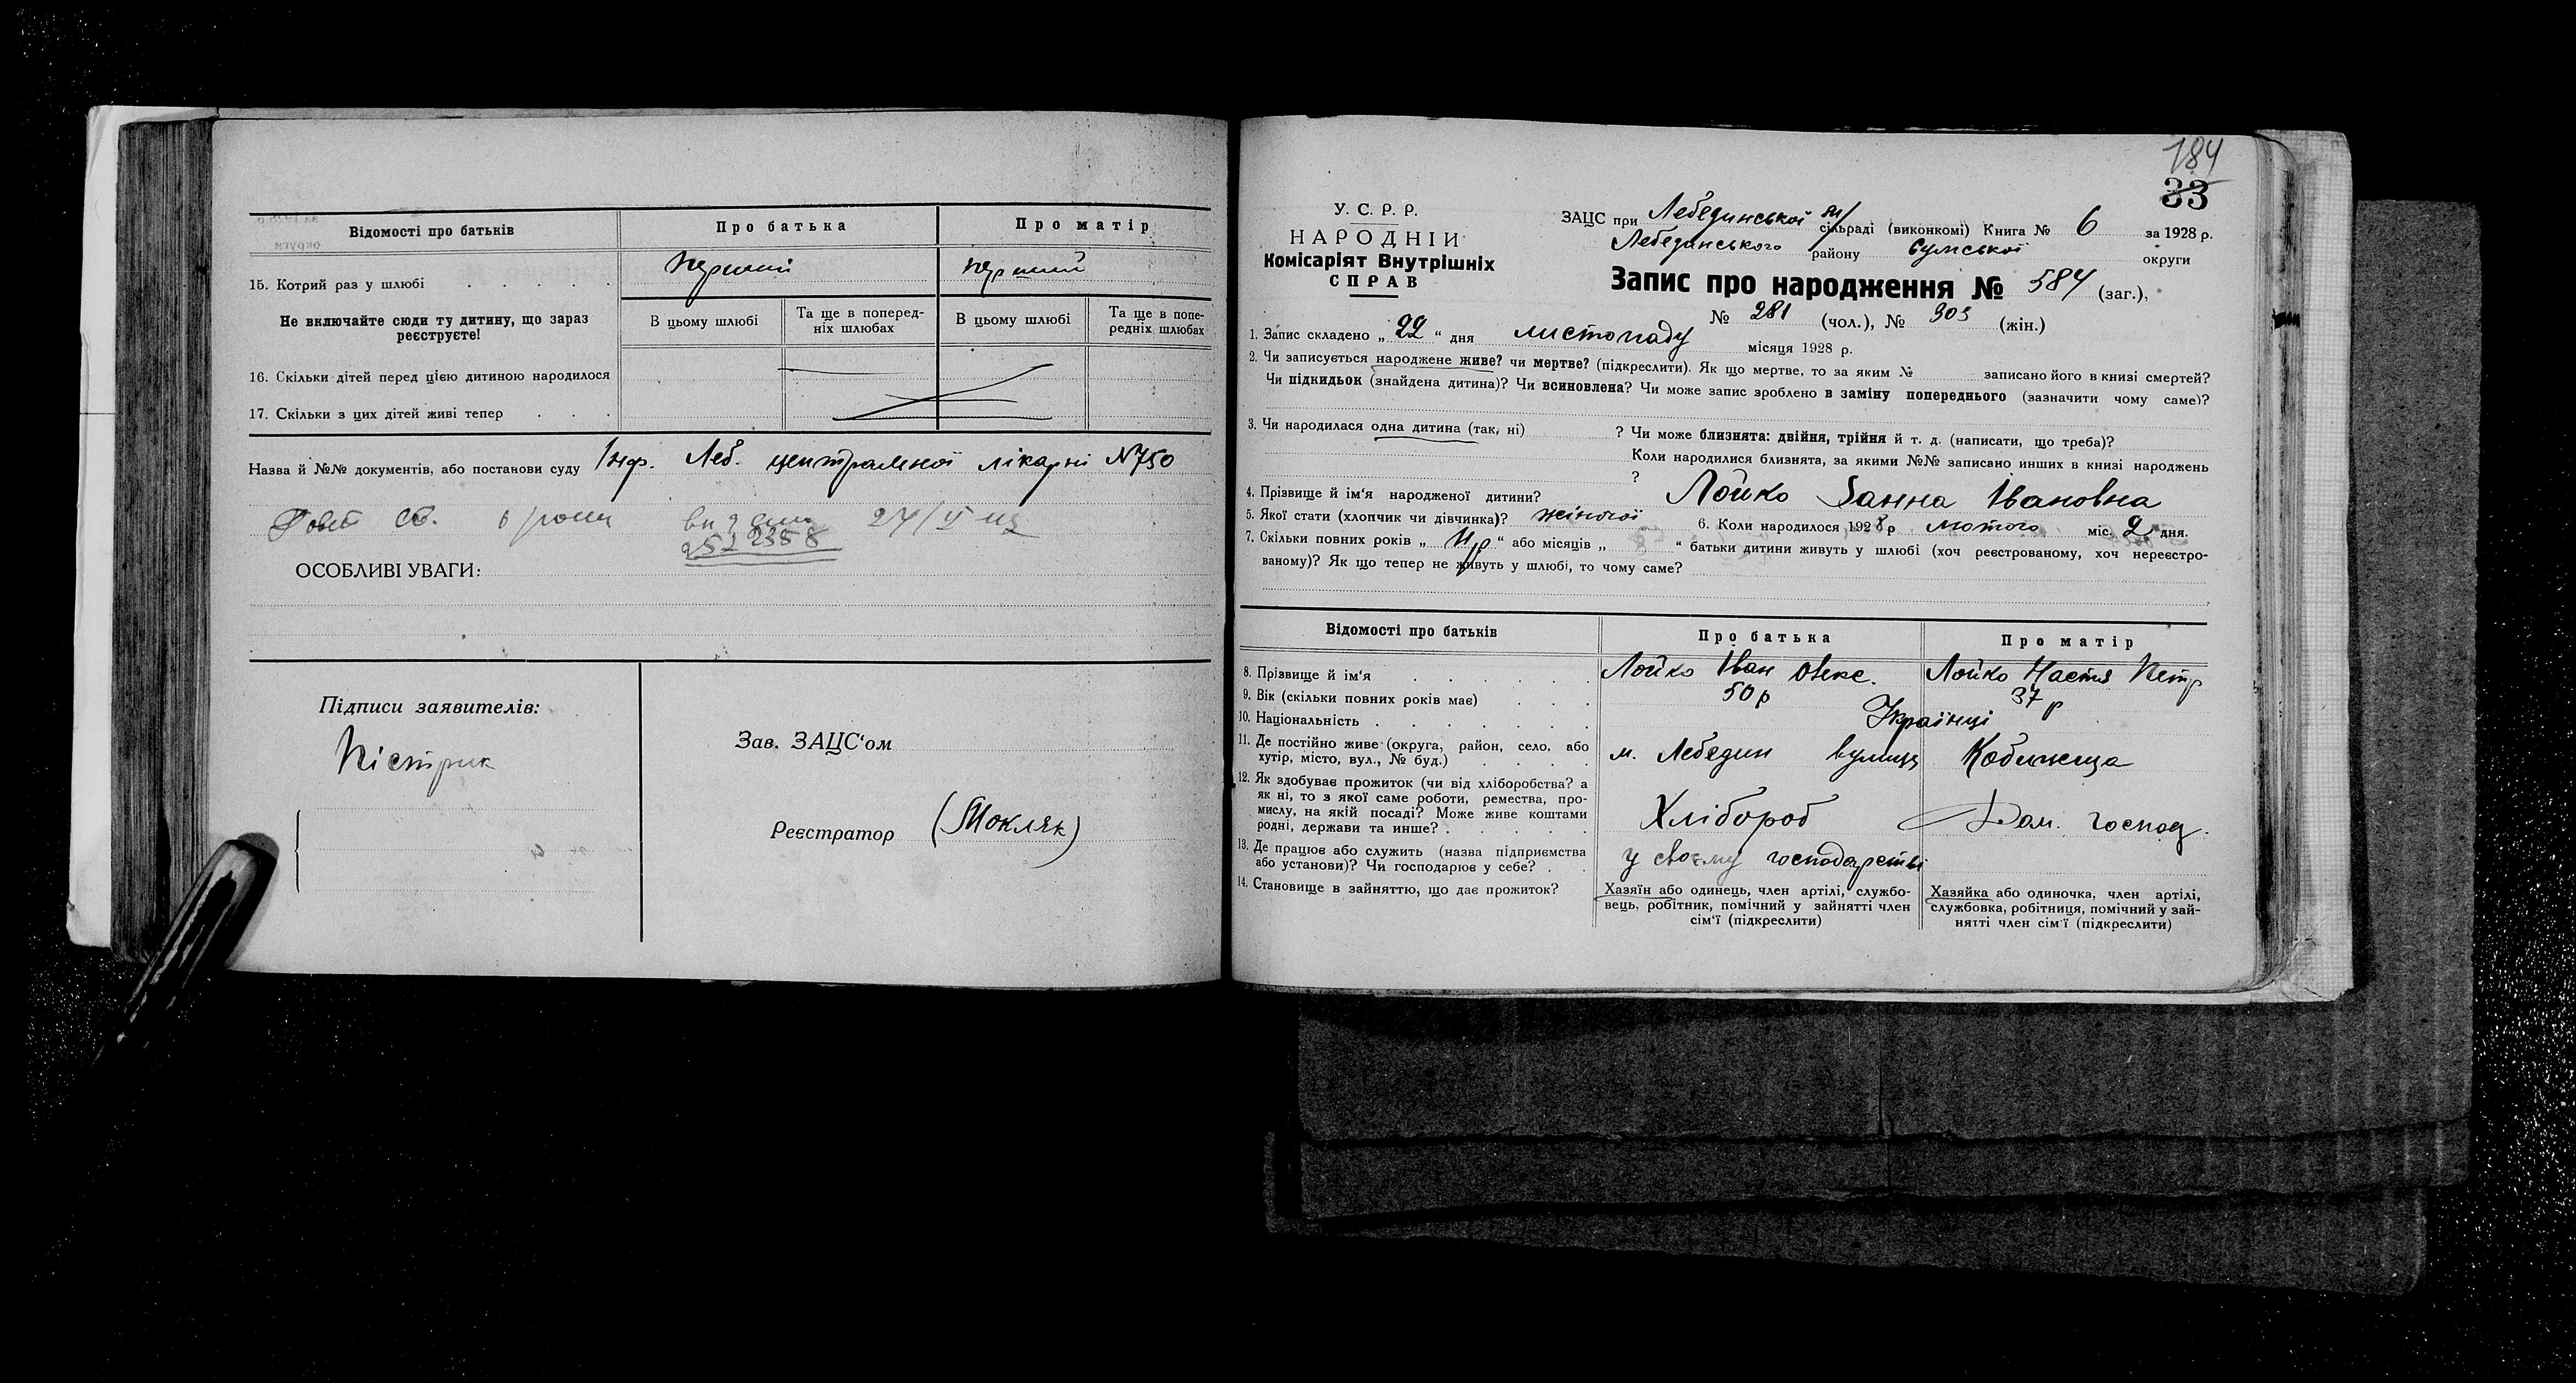 Відомості про батьків
Про батька
Про матір
15. Котрий раз у шлюбі
перший
перший
Не включайте сюди ту дитину, що зараз реєструєте!
В цьому шлюбі
Та ще в поперед-
ніх шлюбах
В цьому шлюбі
Та ще в попе-
редніх шлюбах
16. Скільки дітей перед цією дитиною народилося
17. Скільки з цих дітей живі тепер
Назва й №№ документів, або постанови суду Інф. Леб. центральної лікарні N750
24/II
2512358
ОСОБЛИВІ УВАГИ:
Підписи заявителів:
Пістрик
Зав. ЗАЦС'ом
Реєстратор (Мокляк)
184
33
У. С. Р. Р.
НАРОДНІЙ
Комісаріят Внутрішніх
СПРАВ
ЗАЦС при Лебединської сільраді (виконкомі) Книга № 6 за 1928 р.
Лебединського району Сумської округи
Запис про народження № 584 (заг.),
№ 281 (чол.), № 303 (жін.)
1. Запис складено „22“ дня листопаду місяця 1928 р.
2. Чи записується народжене живе? чи мертве? (підкреслити). Як що мертве, то за яким № записано його в книзі смертей?
Чи підкидьок (знайдена дитина)? Чи всиновлена? Чи може запис зроблено в заміну попереднього (зазначити чому саме)?
3. Чи народилася одна дитина (так, ні) ? Чи може близнята: двійня, трійня й т. д. (написати, що треба)?
Коли народилися близнята, за якими №№ записано инших в книзі народжень
?
4. Прізвище й ім'я народженої дитини? Лойко Ганна Івановна
5. Якої стати (хлопчик чи дівчинка)? жіночої 6. Коли народилося 1928 р лютого міс. 2 дня.
7. Скільки повних років „ 11 р “ або місяців „ “ батьки дитини живуть у шлюбі (хоч реєстрованому, хоч нереєстро-
ваному)? Як що тепер не живуть у шлюбі, то чому саме?
Відомості про батьків
Про батька
Про матір
8. Прізвище й ім'я
Лойко Іван Олекс.
Лойко Настя Петр
9. Вік (скільки повних років має)
50 р
37 р
10. Національність
Українці
11. Де постійно живе (округа, район, село, або
хутір, місто, вул., № буд.)
м. Лебедин вулиця Кобижча
12. Як здобуває прожиток (чи від хліборобства? а
як ні, то з якої саме роботи, ремества, про-
мислу, на якій посаді? Може живе коштами
родні, держави та инше?
Хлібороб
Дом. господ.
13. Де працює або служить (назва підприємства
або установи)? Чи господарює у себе?
у своєму господарстві
14. Становище в зайняттю, що дає прожиток?
Хазяїн або одинець, член артілі, службо-
вець, робітник, помічний у зайнятті член
сім'ї (підкреслити)
Хазяйка або одиночка, член артілі,
службовка, робітниця, помічний у зай-
нятті член сім'ї (підкреслити)